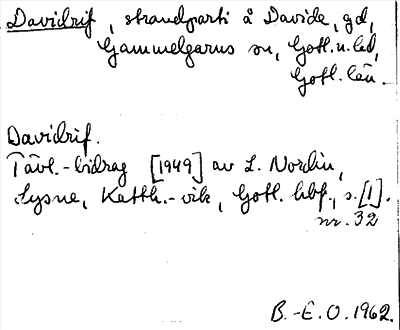 Davidrif, strandparti å Davide, gd,
Gammelgarns sn, Gotl. n. hd,
Gotl. län.
Davidrif.
Tävl.-bidrag [1949] av L. Nordin,
Lysne, Katth.-vik, Gotl. hbf., s. [1].
nr. 32
B.-E. O. 1962.